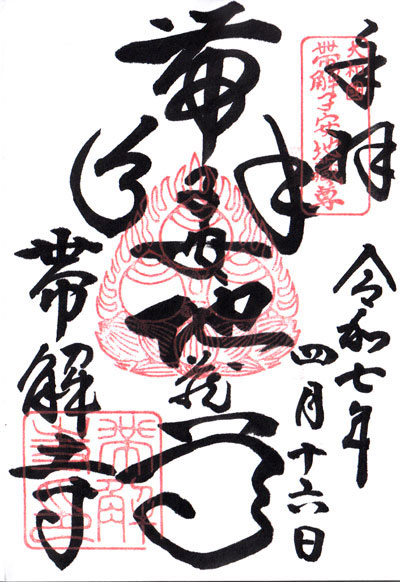 奉拝
大和國
帯解子安地蔵尊
令和七年
四月十六日
帯解子安地蔵尊
帯解寺
帯解
寺印